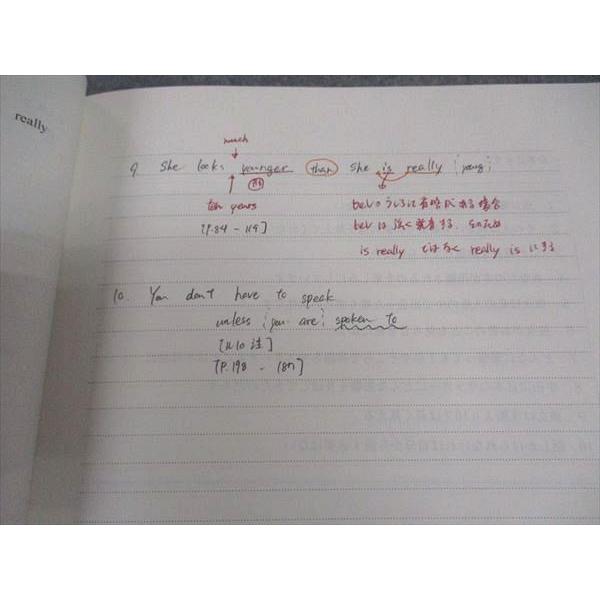 really
much
9 She looks younger than she is really (young)
ten years
beVのうしろに省略がある場合
[P.84 - 119]
beVは強く発音する、そのため
is really ではなく really is にする
10. You don't have to speak
unless (you are) spoken to
[P.198 - 187]